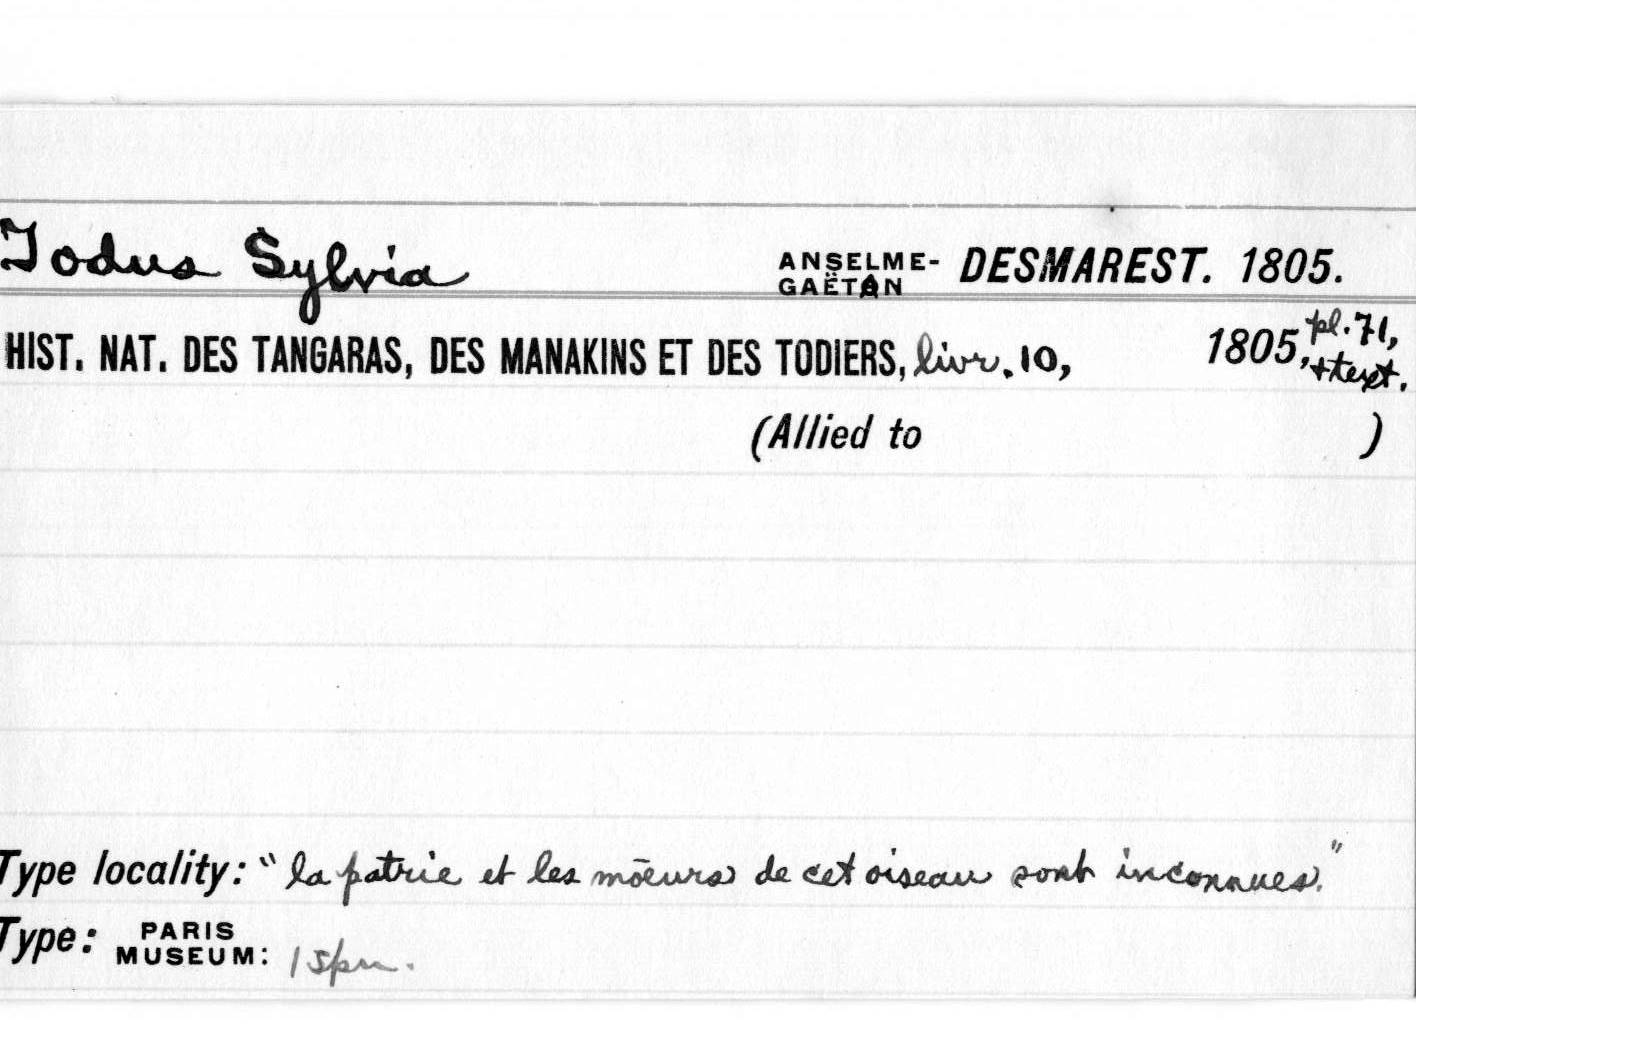 Todus Sylvia ANSELME-GAËTAN DESMAREST. 1805.
HIST. NAT. DES TANGARAS, DES MANAKINS ET DES TODIERS, livr. 10, 1805, pl. 71, + text.
(Allied to )
Type locality: "la patrie et les mœurs de cet oiseau sont inconnues."
Type: PARIS MUSEUM: 1 spm.